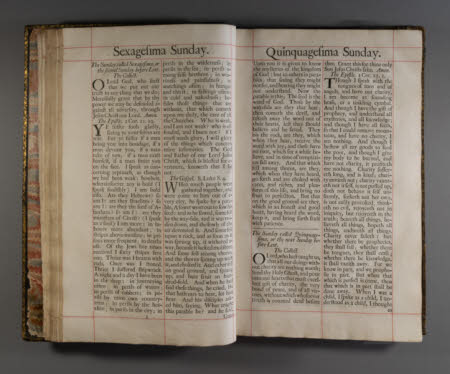 Sexageſima Sunday.
The Sunday called Sexageſima, or
the ſecond Sunday before Lent.
The Collect.
O Lord God, who ſeeſt
that we put not our
truſt in any thing that we do;
Mercifully grant that by thy
power we may be defended a-
gainſt all adverſity, through
Jeſus Chriſt our Lord. Amen.
The Epiſtle. 2 Cor. 11. 19.
YE ſuffer fools gladly,
ſeeing ye yourſelves are
wiſe. For ye ſuffer if a man
bring you into bondage, if a
man devour you, if a man
take of you, if a man exalt
himſelf, if a man ſmite you
on the face. I ſpeak as con-
cerning reproach, as though
we had been weak: howbeit,
whereinſoever any is bold (I
ſpeak fooliſhly) I am bold
alſo. Are they Hebrews? ſo
am I: are they Iſraelites? ſo
am I: are they the ſeed of A-
braham? ſo am I: are they
miniſters of Chriſt? (I ſpeak
as a fool) I am more: in la-
bours more abundant; in
ſtripes above meaſure; in pri-
ſons more frequent; in deaths
oft. Of the Jews five times
received I forty ſtripes ſave
one. Thrice was I beaten with
rods; Once was I ſtoned;
Thrice I ſuffered ſhipwrack:
A night and a day I have been
in the deep: in journeying
often; in perils of waters;
in perils of robbers; in pe-
rils by mine own country-
men; in perils by the hea-
then; in perils in the city; in
perils in the wilderneſs; in
perils in the ſea; in perils a-
mong falſe brethren; in wea-
rineſs and painfulneſs; in
watchings often; in hunger
and thirſt; in faſtings often;
in cold and nakedneſs; be-
ſides thoſe things that are
without, that which cometh
upon me daily, the care of all
the Churches. Who is weak,
and I am not weak? who is of-
fended, and I burn not? If I
muſt needs glory, I will glory
of the things which concern
mine infirmities. The God
and Father of our Lord Jeſus
Chriſt, which is bleſſed for e-
vermore, knoweth that I lie
not.
The Goſpel. S. Luke 8. 4.
WHen much people were
gathered together, and
were come to him out of e-
very city, he ſpake by a para-
ble, A ſower went out to ſow his
ſeed: and as he ſowed, ſome fell
by the way-ſide, and it was tro-
den down, and the fowls of the
air devoured it. And ſome fell
upon a rock, and as ſoon as it
was ſprung up, it withered a-
way, becauſe it lacked moiſture.
And ſome fell among thorns,
and the thorns ſprang up with
it, and choked it. And other fell
on good ground, and ſprang
up, and bare fruit an hun-
dred-fold. And when he had
ſaid theſe things, he cried, He
that hath ears to hear, let him
hear. And his diſciples asked
him, ſaying, What might
this parable be? and he ſaid,
Unto
Quinquageſima Sunday.
Unto you it is given to know
the myſteries of the kingdom
of God: but to others in para-
bles; that ſeeing they might
not ſee, and hearing they might
not underſtand. Now the
parable is this; The ſeed is the
word of God. Thoſe by the
way-ſide are they that hear:
then cometh the devil, and
taketh away the word out of
their hearts, leſt they ſhould
believe and be ſaved. They
on the rock, are they, which
when they hear, receive the
word with joy; and theſe have
no root, which for a while be-
lieve, and in time of temptati-
on fall away. And that which
fell among thorns, are they,
which when they have heard,
go forth, and are choked with
cares, and riches, and plea-
ſures of this life, and bring no
fruit to perfection. But that
on the good ground are they,
which in an honeſt and good
heart, having heard the word,
keep it, and bring forth fruit
with patience.
The Sunday called Quinquage-
ſima, or the next Sunday be-
fore Lent.
The Collect.
O Lord, who haſt taught us,
that all our doings with-
out charity are nothing worth;
Send thy Holy Ghoſt, and pour
into our hearts that moſt ex-
cellent gift of charity, the very
bond of peace, and of all vir-
tues, without which whoſoever
liveth is counted dead before
thee. Grant this for thine only
Son Jeſus Chriſts ſake. Amen.
The Epiſtle. 1 Cor. 13. 1.
THough I ſpeak with the
tongues of men and of
angels, and have not charity,
I am become as ſounding
braſs, or a tinkling cymbal.
And though I have the gift of
prophecy, and underſtand all
myſteries, and all knowledge;
and though I have all faith, ſo
that I could remove moun-
tains, and have no charity, I
am nothing. And though I
beſtow all my goods to feed
the poor, and though I give
my body to be burned, and
have not charity, it profiteth
me nothing. Charity ſuffereth
long, and is kind; charity
envieth not; charity vaunt-
eth not itſelf, is not puffed up,
doth not behave it ſelf un-
ſeemly, ſeeketh not her own,
is not eaſily provoked, think-
eth no evil, rejoyceth not in
iniquity, but rejoyceth in the
truth; beareth all things, be-
lieveth all things, hopeth all
things, endureth all things.
Charity never faileth: but
whether there be prophecies,
they ſhall fail; whether there
be tongues, they ſhall ceaſe;
whether there be knowledge,
it ſhall vaniſh away. For we
know in part, and we prophe-
ſie in part. But when that
which is perfect is come, then
that which is in part ſhall be
done away. When I was a
child, I ſpake as a child, I un-
derſtood as a child, I thought
as